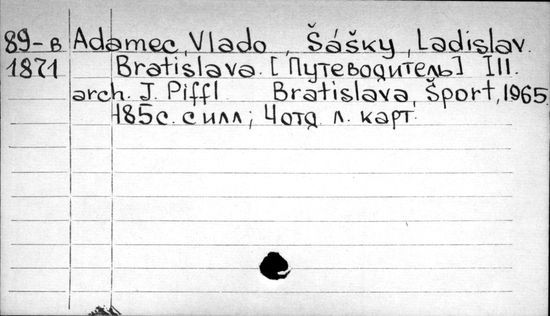 89-в Adamec, Vlado, Šášky, Ladislav.
1871 Bratislava. [Путеводитель] Ill.
arch. J. Piffl Bratislava, Šport, 1965.
185 с. с илл; 4 отд. л. карт.